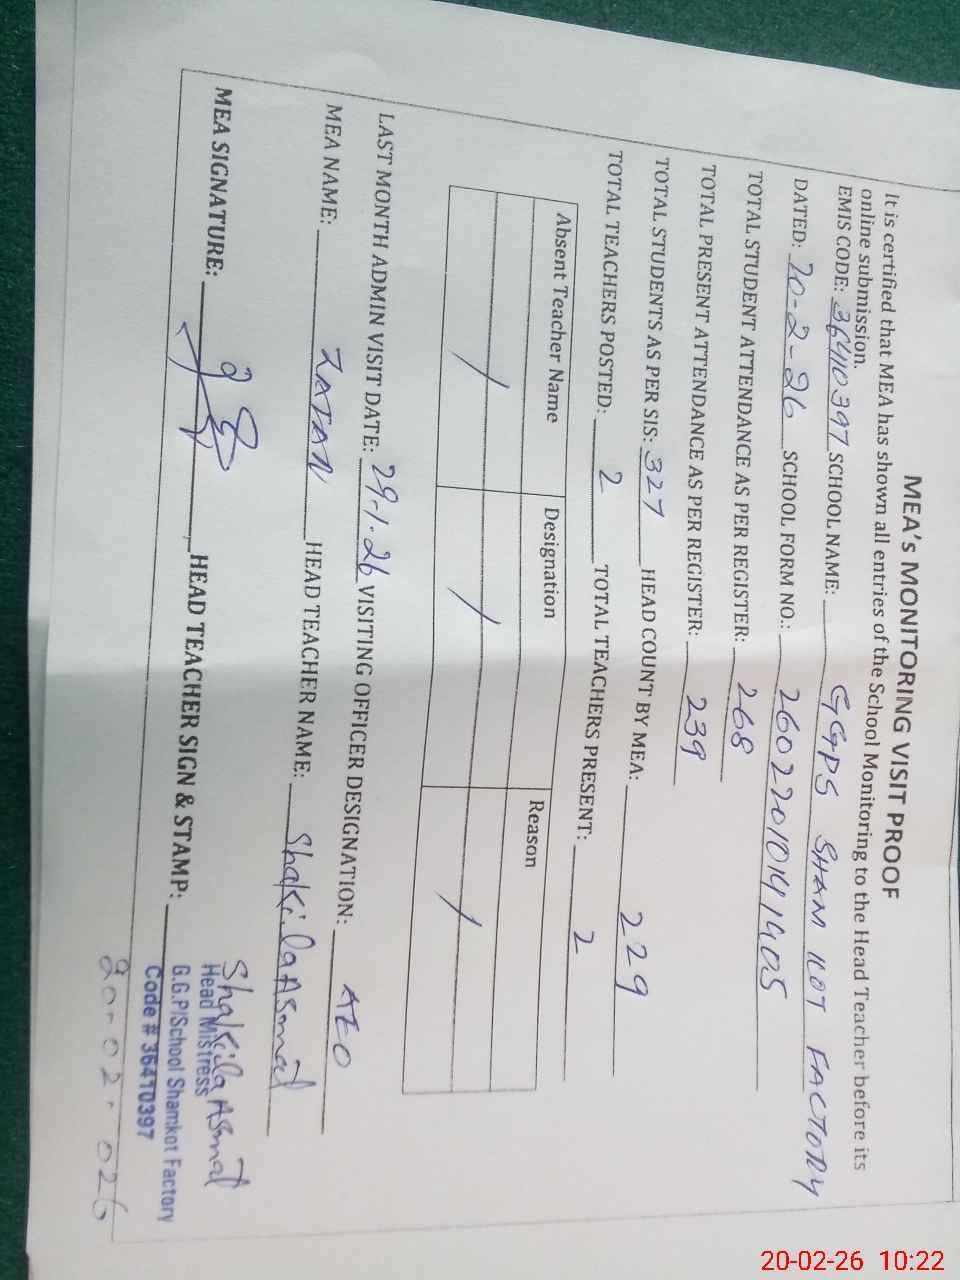 MEA's MONITORING VISIT PROOF
It is certified that MEA has shown all entries of the School Monitoring to the Head Teacher before its
online submission.
EMIS CODE: 36410397 SCHOOL NAME: GGPS SHAM KOT FACTORY
DATED: 20-2-26 SCHOOL FORM NO.: 26022010141405
TOTAL STUDENT ATTENDANCE AS PER REGISTER: 268
TOTAL PRESENT ATTENDANCE AS PER REGISTER: 239
TOTAL STUDENTS AS PER SIS: 327 HEAD COUNT BY MEA: 229
TOTAL TEACHERS POSTED: 2 TOTAL TEACHERS PRESENT: 2
Absent Teacher Name Designation Reason
LAST MONTH ADMIN VISIT DATE: 29.1.26 VISITING OFFICER DESIGNATION: AEO
MEA NAME: HEAD TEACHER NAME: Shakila Asmat
MEA SIGNATURE: HEAD TEACHER SIGN & STAMP:
Shakila Asmat
Head Mistress
G.G.P/School Shamkot Factory
Code # 36410397
20-02-026
20-02-26 10:22